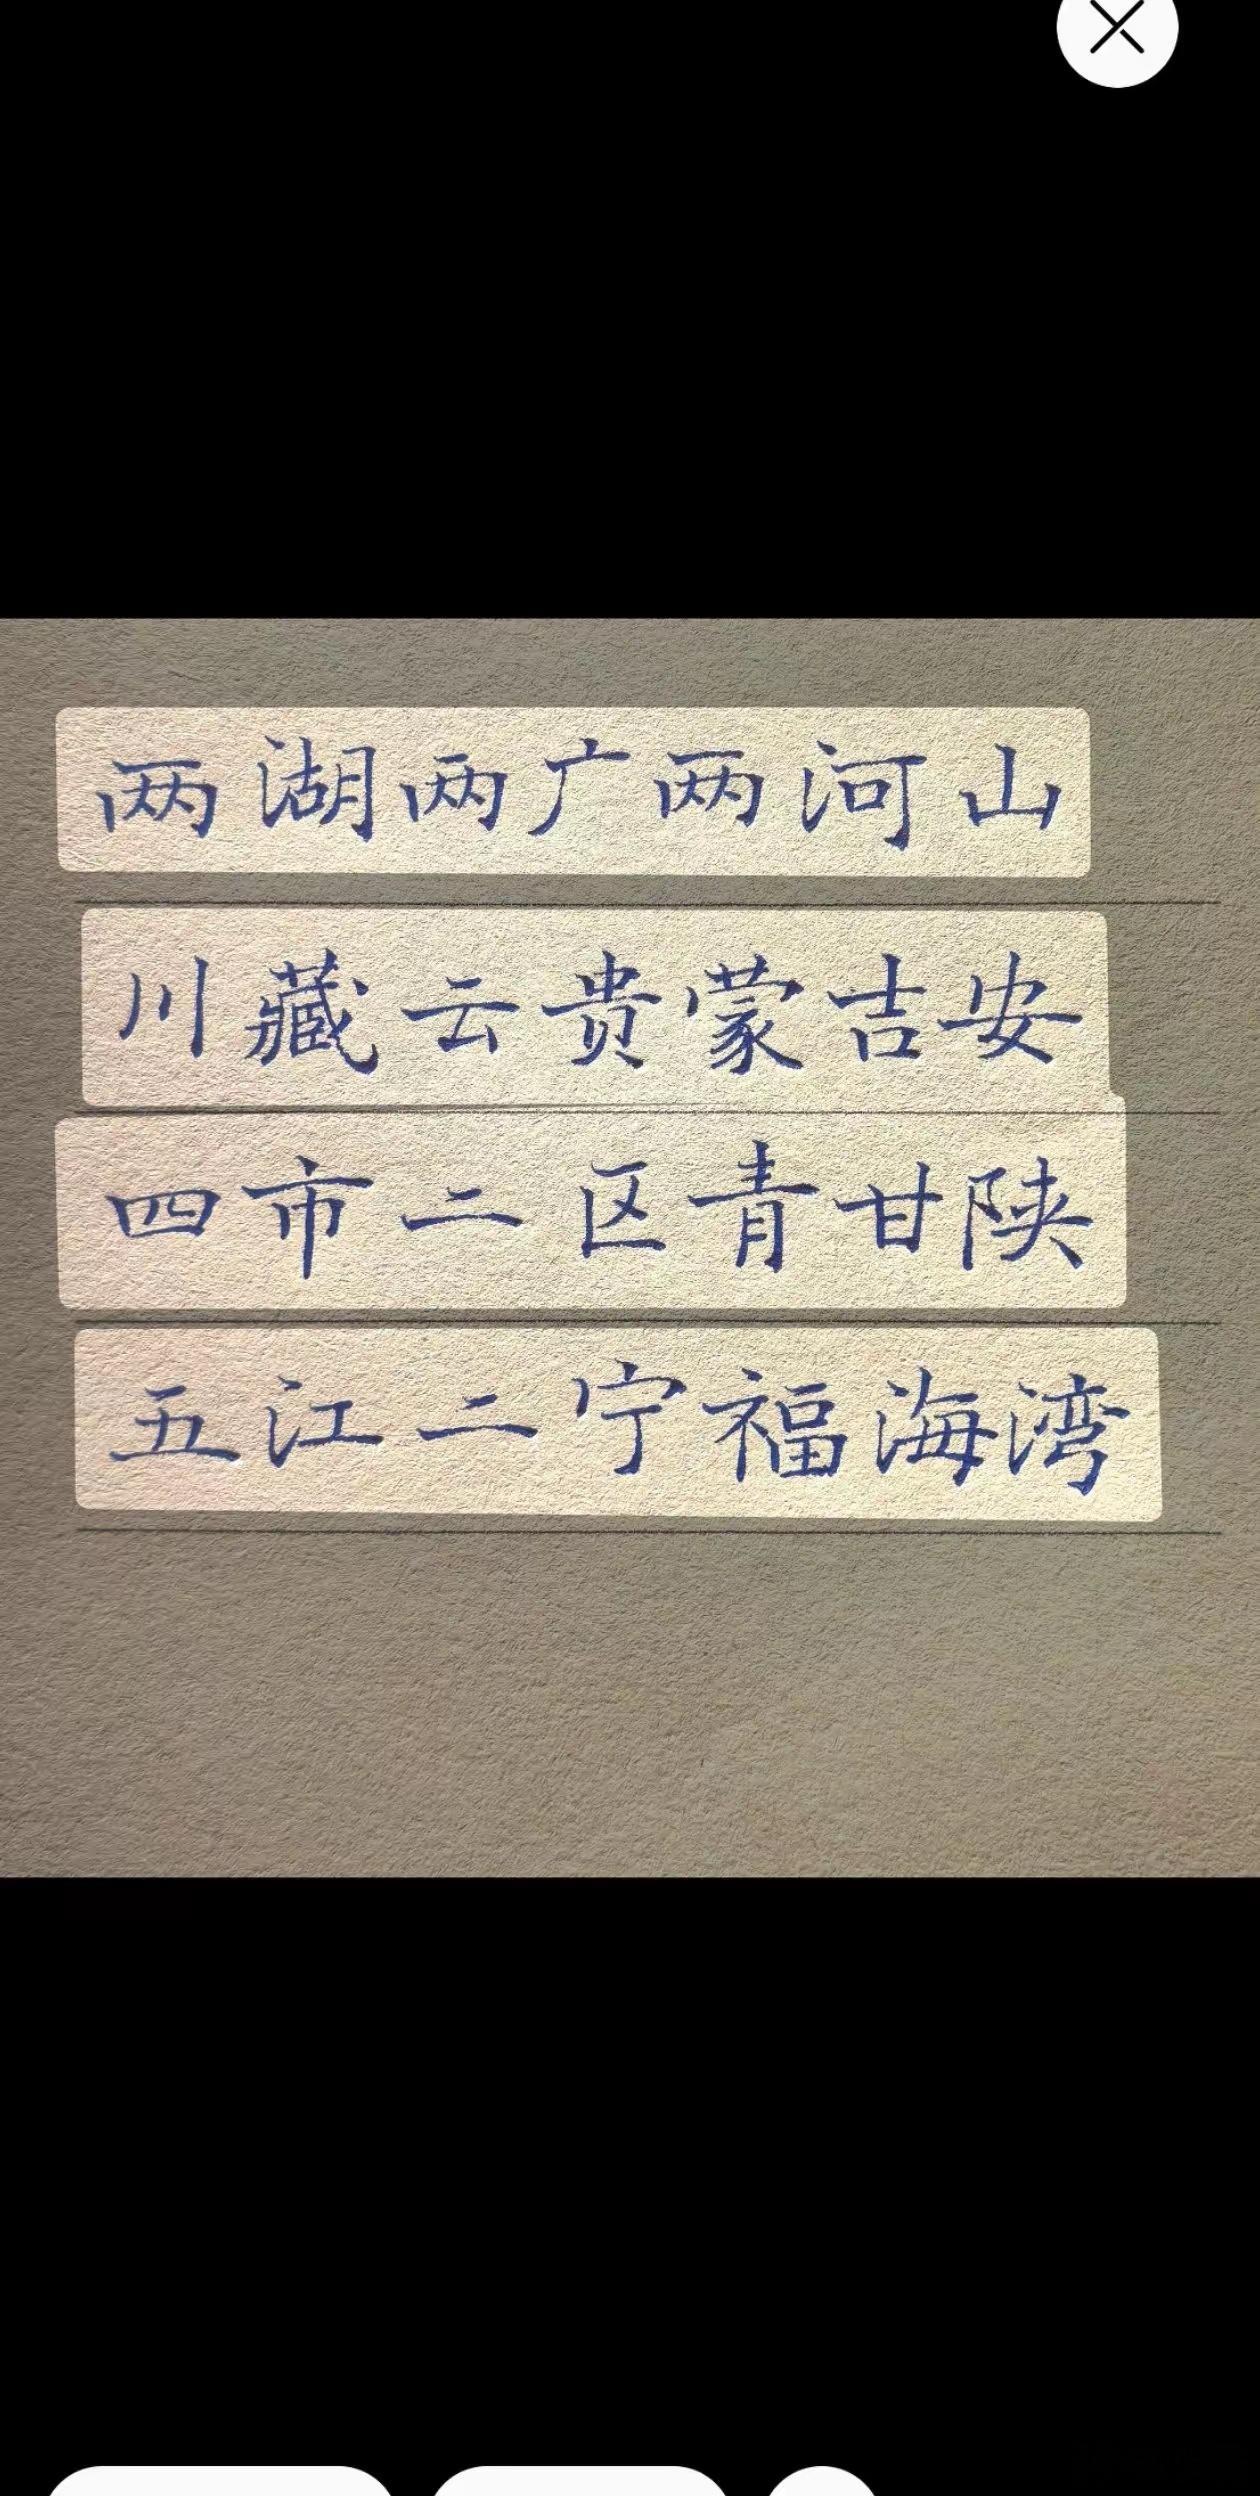 两湖两广两河山
川藏云贵蒙吉安
四市二区青甘陕
五江二宁福海湾